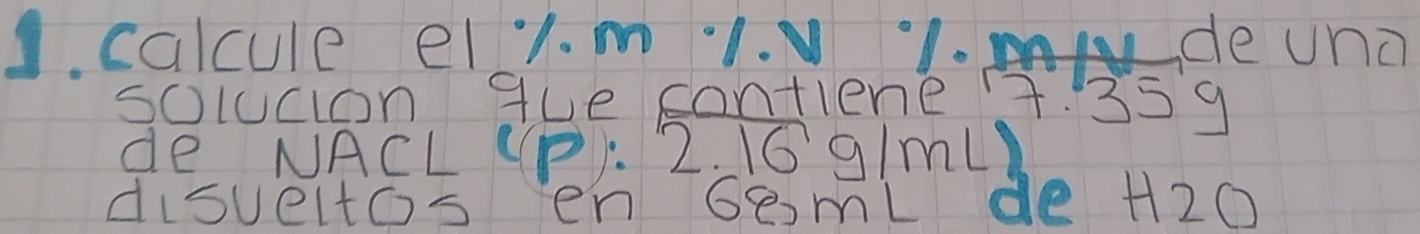 1. calcule el %.m %.V %.m/v de una
solucion que contiene 7.35g
de NACL (p: 2.16 g/mL)
disueltos en 68mL de H2O